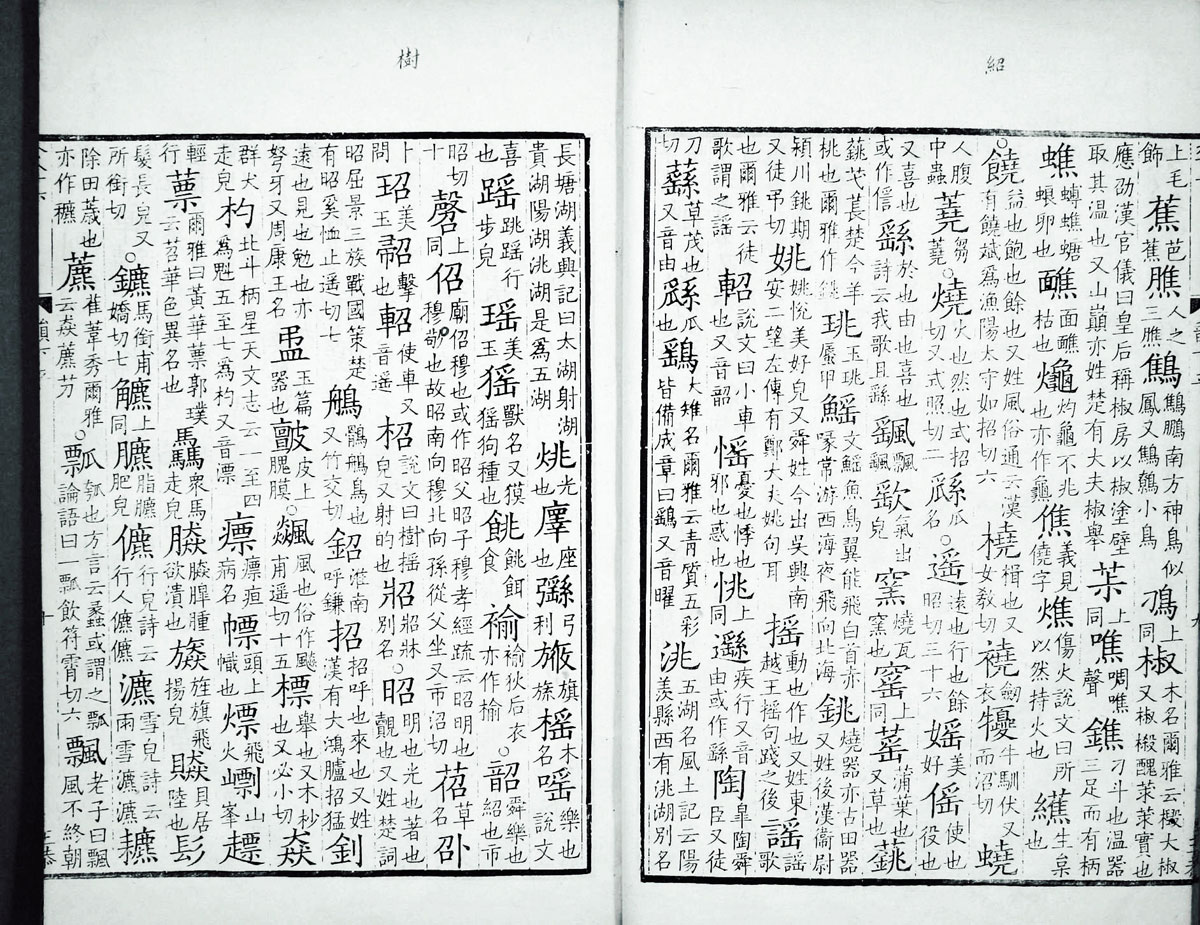 紹
上毛飾蕉芭蕉膲人之三膲鷦鷦鵬南方神鳥似鳳又鷦鷯小鳥鴵上同椒木名爾雅云檓大椒又椒樧醜莍莍實也
應劭漢官儀曰皇后稱椒房以椒塗壁取其温也又山巓亦姓楚有大夫椒舉茮上同噍啁噍聲鐎刁斗也温器三足而有柄
蟭卵也面枯也灼龜不兆也亦作僬義見僥字燋傷火說文曰所以然持火也生枲也
○饒益也飽也餘也又姓風俗通云漢有饒斌爲漁陽太守如招切六橈楫也又女敎切襓劒衣犪牛馴伏又而沼切蟯
人腹中蟲蕘芻蕘○燒火也然也式招切又式照切二瓜名○遥遠也行也餘昭切三十六媱美好傜使也役也
又喜也或作䌛於也由也喜也詩云我歌且䌛颻飄颻氣出皃窯燒瓦窯也窰上同䔄蒲葉也又草也
芅萇楚今羊桃也爾雅作銚珧玉珧蜃甲鰩文鰩魚鳥翼能飛白首亦喙常游西海夜飛向北海銚燒器亦古田器又姓後漢衞尉
潁川銚期又徒弔切姚姚悅美好皃又舜姓今出吳興南安二望左傳有鄭大夫姚句耳摇動也作也又姓東越王摇句踐之後謡謡歌
也爾雅云徒歌謂之謡軺說文曰小車也又音韶愮憂也悸也邪也惑也恌上同疾行又音由或作䌛陶臯陶舜臣又徒
刀切蘨草茂也又音由瓜也鷂大雉名爾雅云青質五彩皆備成章曰鷂又音曜洮五湖名風土記云陽羨縣西有洮湖別名
樹
長塘湖義興記曰太湖射湖貴湖陽湖洮湖是爲五湖烑光也座也弓利旗旐榣木名嗂樂也說文
喜也跳踰行步皃瑶美玉猺獸名又獏猺狗種也餆餆餌食褕褕狄后衣亦作揄○韶舜樂也紹也市
昭切十磬上同佋廟佋穆也或作昭父昭子穆孝經疏云昭明也穆敬也故昭南向穆北向孫從父坐又市沼切苕草也卲
卜問玿美玉擊也軺使車又音遥柖說文曰樹摇皃又射的也牀別名○昭明也光也著也覿也又姓楚詞
昭屈景三族戰國策楚有昭奚恤止遥切七鵃鶻鵃鳥也又竹交切鉊淮南呼鎌招招呼也來也又姓漢有大鴻臚招猛釗
遠也見也勉也亦弩牙又周康王名玉篇器也皮上膜○飆風也俗作飇甫遥切十五標舉也又木杪也又必小切猋
群犬走皃杓北斗柄星天文志云一至四爲魁五至七爲杓又音漂瘭瘭疽病名幖頭上幟也熛飛火嶛山峯
輕行蔈爾雅曰黃華蔈郭璞云苕華色異名也驫衆馬走皃膔腫欲潰也旌旗飛揚皃貝居陸也髟
髮長皃又所銜切○鑣馬銜甫嬌切七上同臕脂臕肥皃儦行皃詩云行人儦儦瀌雪皃詩云雨雪瀌瀌穮
除田薉也亦作穮藨萑葦秀爾雅云猋藨芀○瓢瓠也方言云蠡或謂之瓢論語曰一瓢飲符霄切六飄老子曰飄風不終朝